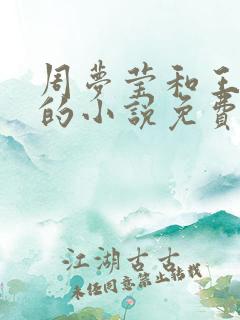 周夢莹和王
的小説免費
江湖古古
未经同意禁止转载